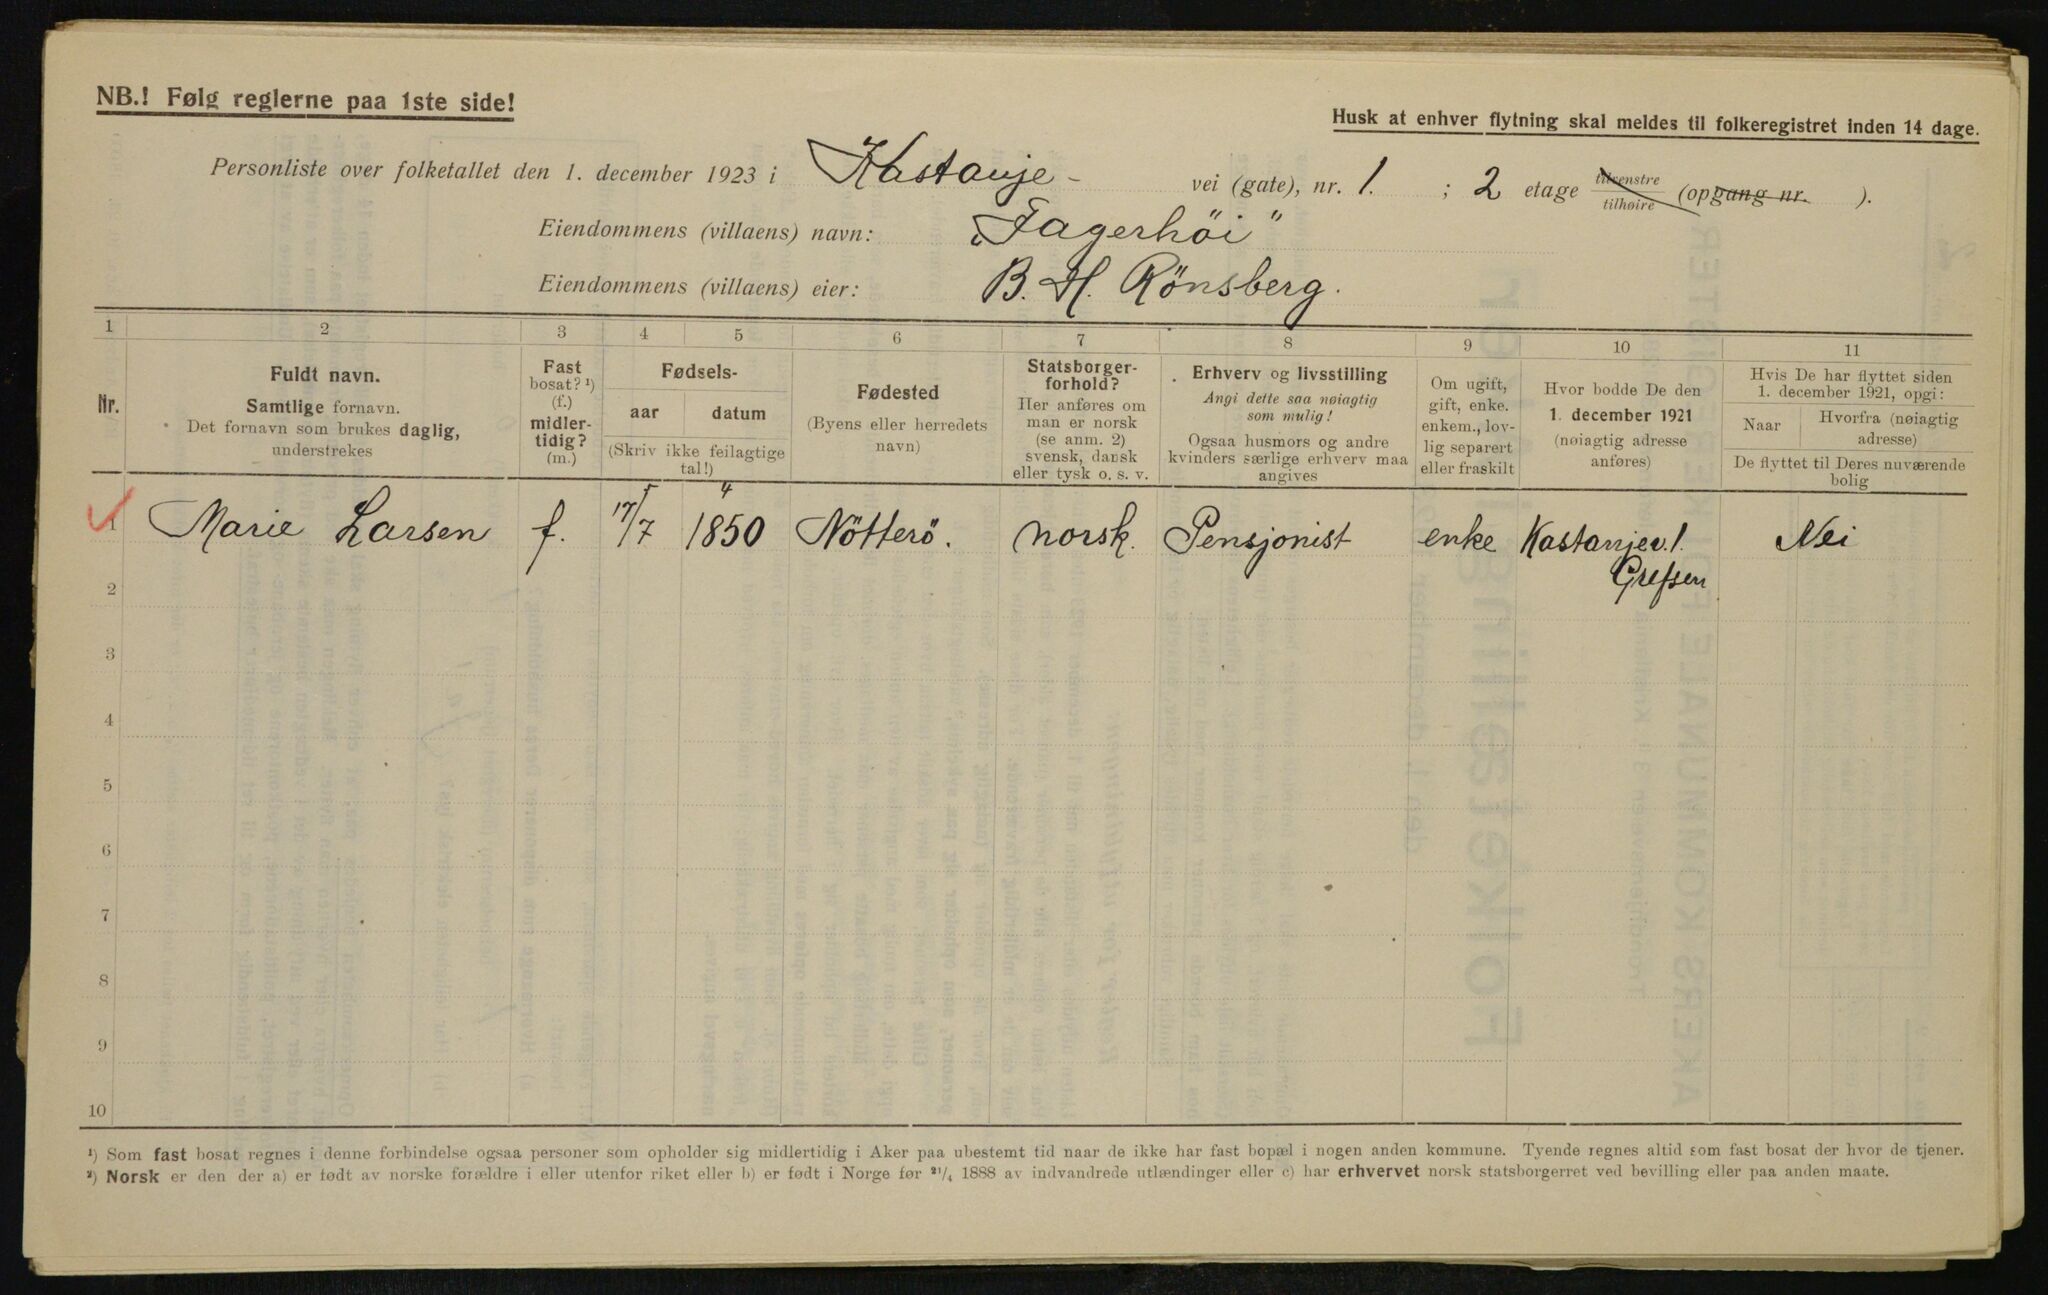 NB.! Følg reglerne paa 1ste side!
Husk at enhver flytning skal meldes til folkeregistret inden 14 dage.
Personliste over folketallet den 1. december 1923 i Kastanje- vei (gate), nr. 1. ; 2 etage tilvenstre tilhøire (opgang nr. ).
Eiendommens (villaens) navn: „Fagerhöi"
Eiendommens (villaens) eier: B. H. Rönsberg.
1 2 3 4 5 6 7 8 9 10 11
Nr.
Fuldt navn.
Samtlige fornavn.
Det fornavn som brukes daglig,
understrekes
Fast
bosat? ¹)
(f.)
midler-
tidig?
(m.)
Fødsels-
aar datum
(Skriv ikke feilagtige
tal!)
Fødested
(Byens eller herredets
navn)
Statsborger-
forhold?
Her anføres om
man er norsk
(se anm. 2)
svensk, dansk
eller tysk o. s. v.
Erhverv og livsstilling
Angi dette saa nøiagtig
som mulig!
Ogsaa husmors og andre
kvinders særlige erhverv maa
angives
Om ugift,
gift, enke.
enkem., lov-
lig separert
eller fraskilt
Hvor bodde De den
1. december 1921
(nøiagtig adresse
anføres)
Hvis De har flyttet siden
1. december 1921, opgi:
Naar
Hvorfra (nøiagtig
adresse)
De flyttet til Deres nuværende
bolig
1 Marie Larsen f. 17/7 1850 Nötterö. norsk. Pensjonist enke Kastanjev. 1. Nei
Grefsen
2
3
4
5
6
7
8
9
10
¹) Som fast bosat regnes i denne forbindelse ogsaa personer som opholder sig midlertidig i Aker paa ubestemt tid naar de ikke har fast bopæl i nogen anden kommune. Tyende regnes altid som fast bosat der hvor de tjener.
²) Norsk er den der a) er født av norske forældre i eller utenfor riket eller b) er født i Norge før ²¹/₄ 1888 av indvandrede utlændinger eller c) har erhvervet norsk statsborgerret ved bevilling eller paa anden maate.